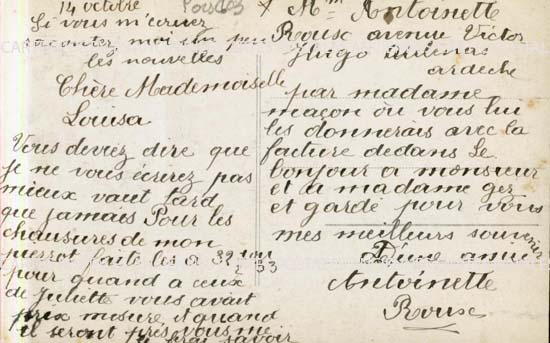 14 octobre
Si vous m'ecrivez
racontez moi un peu
les nouvelles
Chère Mademoiselle
Louisa
Vous deviez dire que
je ne vous écrirez pas
mieux vaut tard
que jamais Pour les
chausures de mon
pierrot faite les a 32
33
pour quand a ceux
de Juliette vous avait
prix mesure et quand
il seront près vous me
savoir
x Mme Antoinette
Rouse avenue Victor
Hugo
ardeche
par madame
maçon ou vous lui
les donnerais avec la
facture dedans le
bonjour a monsieur
et a madame ger
et gardé pour vous
mes meilleurs souvenir
D'une amie
Antoinette
Rouse